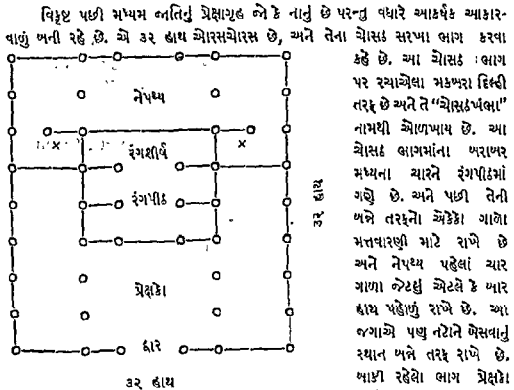 વિકૃષ્ટ પછી મધ્યમ જાતિનું પ્રેક્ષાગૃહ જો કે નાનું છે પરન્તુ વધારે આકર્ષક આકાર-
વાળું બની રહે છે. એ ૩૨ હાથ ચોરસચોરસ છે, અને તેના ચોસઠ સરખા ભાગ કરવા
કહે છે. આ ચોસઠ ભાગ
પર રચાએલા મકબરા દિલ્હી
તરફ છે અને તે “ચોસઠખંભા”
નામથી ઓળખાય છે. આ
ચોસઠ ભાગમાંના બરાબર
મધ્યના ચારને રંગપીઠમાં
ગણે છે. અને પછી તેની
બન્ને તરફનો એકેકો ગાળો
મત્તવારણી માટે રાખે છે
અને નેપથ્ય પહેલાં ચાર
ગાળા જેટલું એટલે કે બાર
હાથ પહોળું રાખે છે. આ
જગાએ પણ નટોને બેસવાનું
સ્થાન બન્ને તરફ રાખે છે.
બાકી રહેલો ભાગ પ્રેક્ષકો
નેપથ્ય
x
x
રંગશીર્ષ
રંગપીઠ
પ્રેક્ષકો
દ્વાર
૩૨ હાથ
૩૨ હાથ